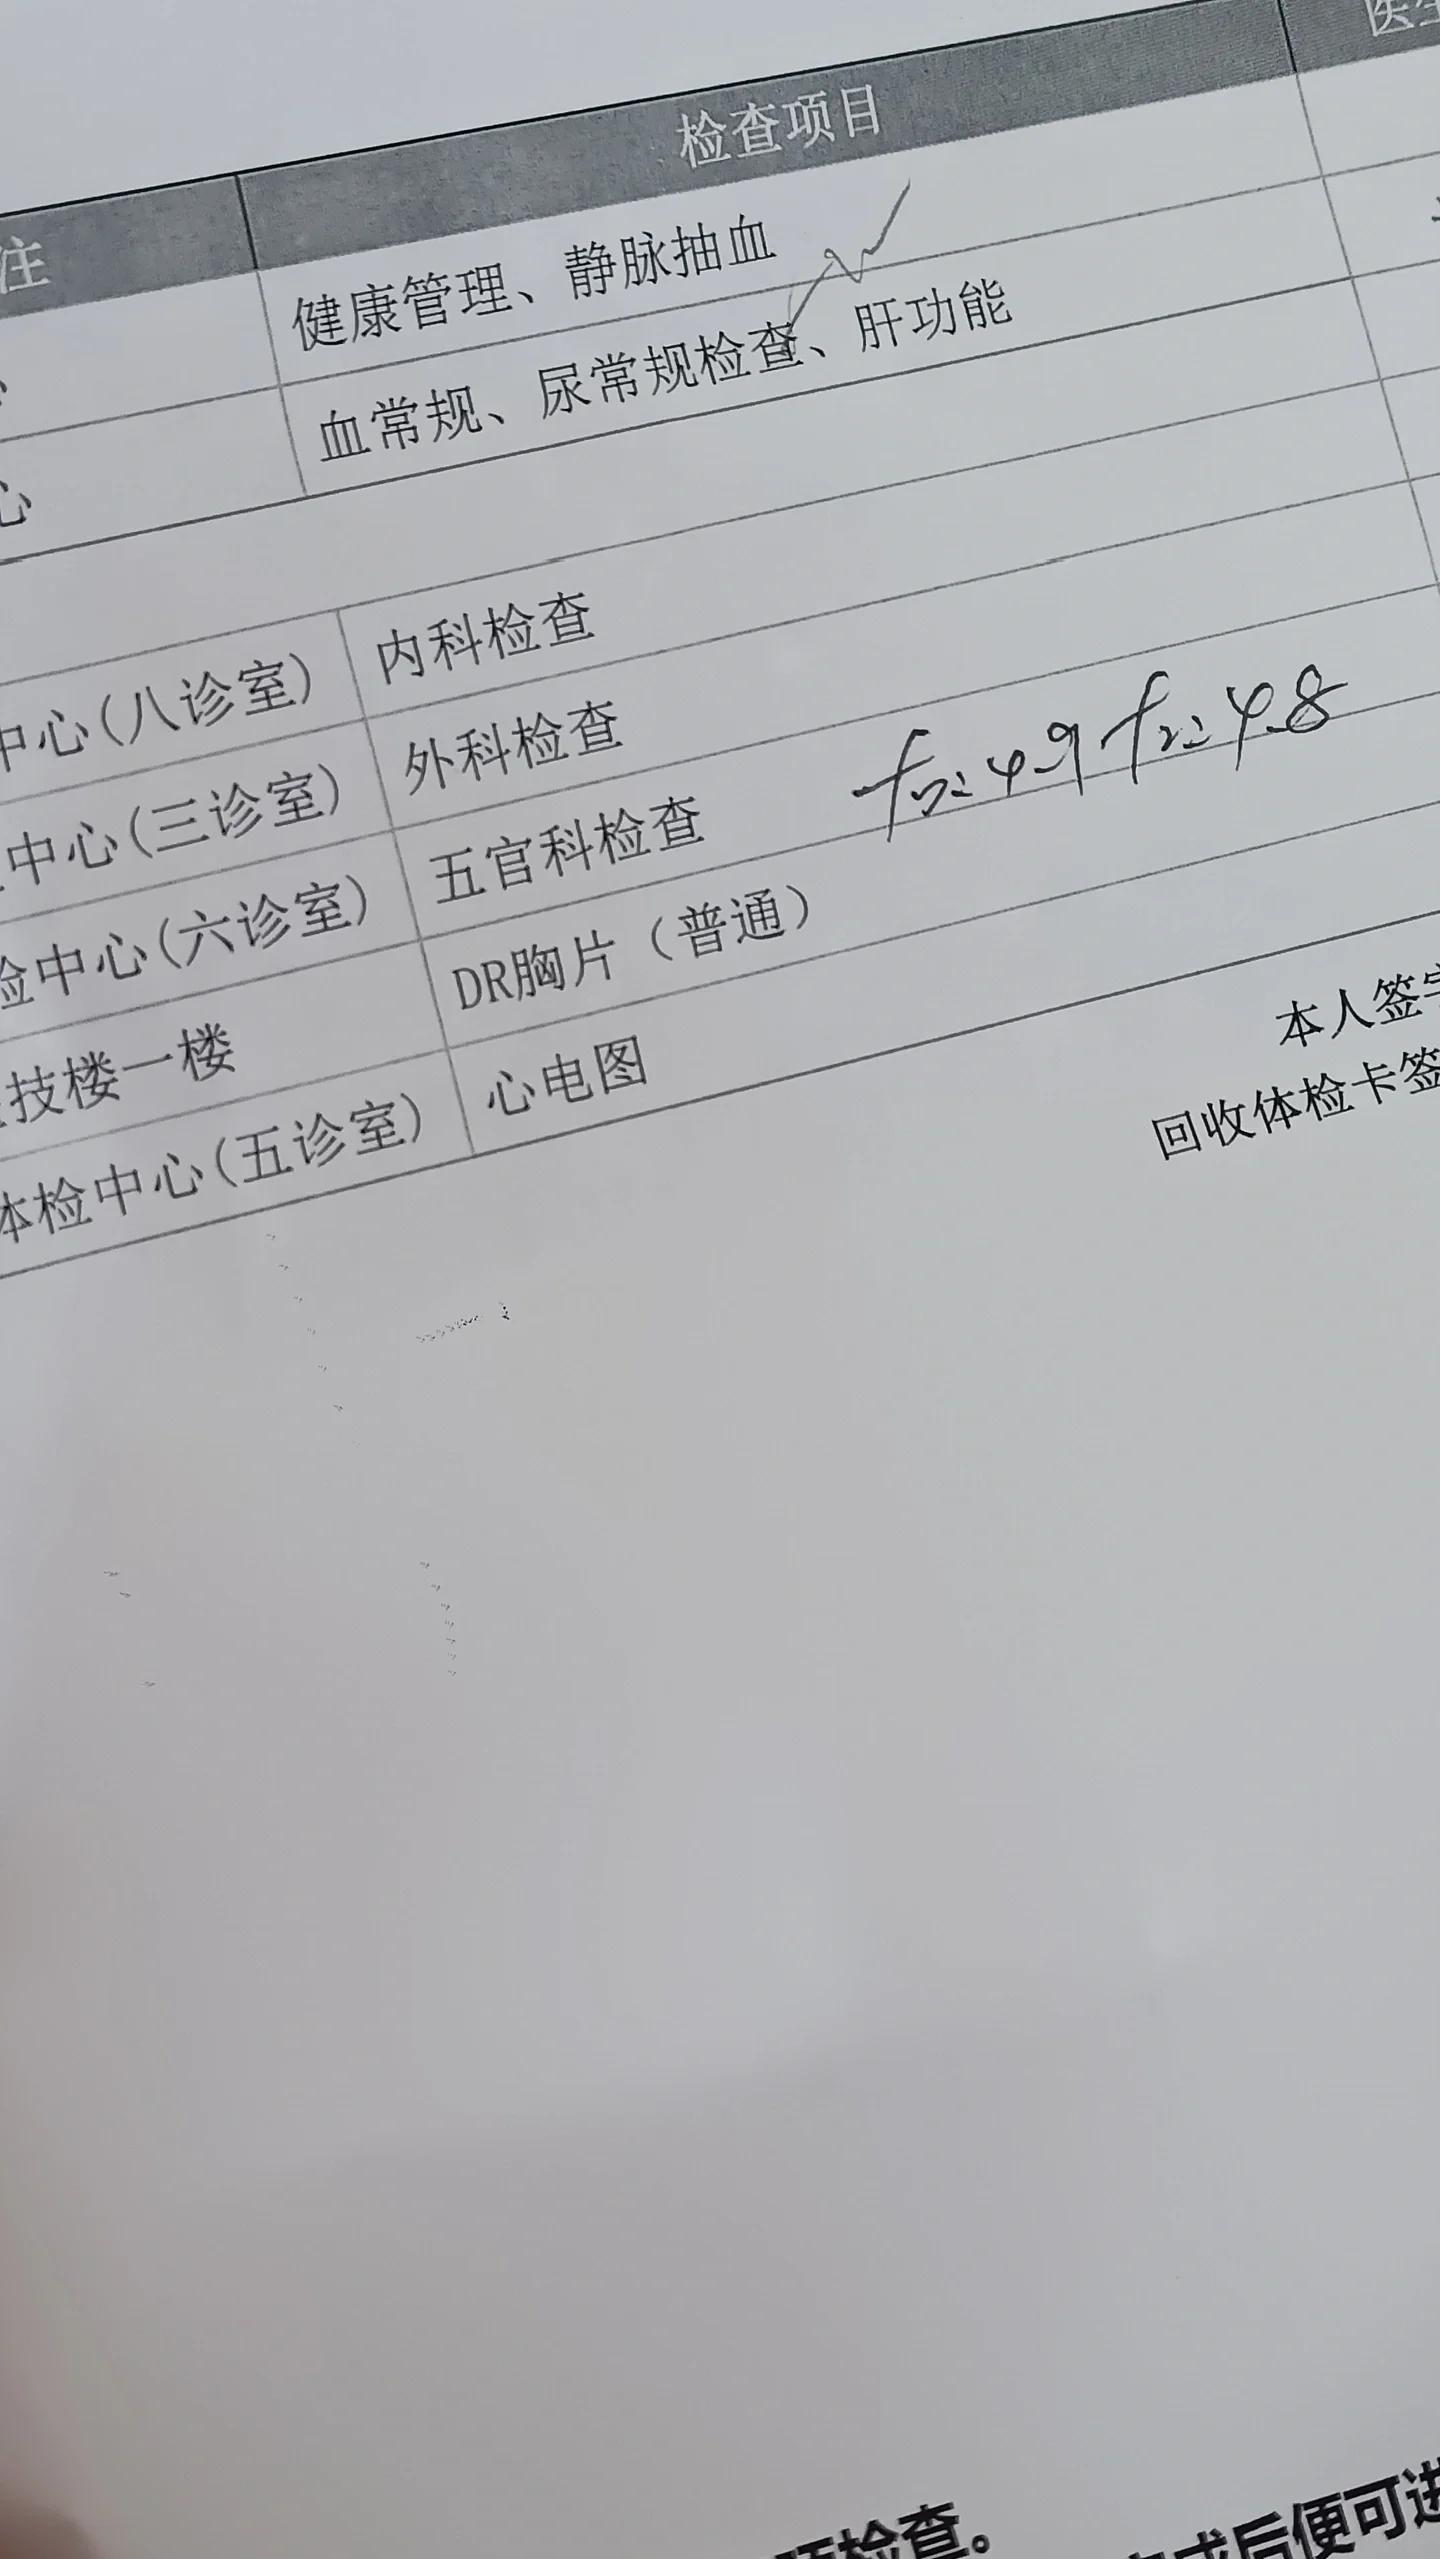 检查项目
注
健康管理、静脉抽血
血常规、尿常规检查、肝功能
心
中心(八诊室) 内科检查
中心(三诊室) 外科检查
检中心(六诊室) 五官科检查
技楼一楼 DR胸片（普通）
体检中心(五诊室) 心电图
本人签字
回收体检卡签
检查。
后便可进